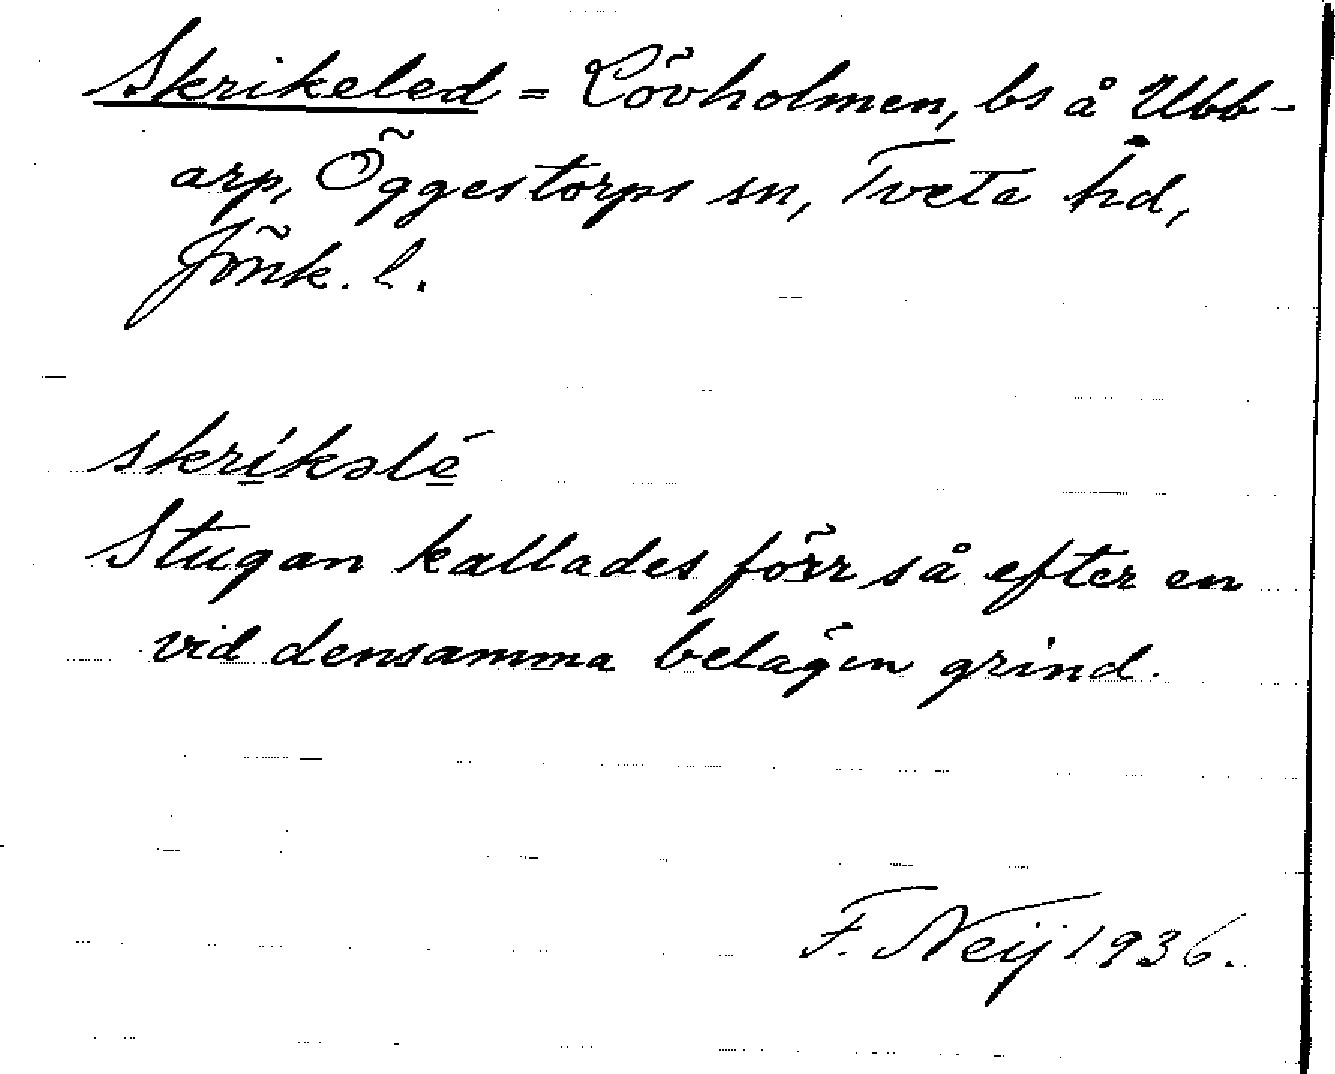 Skrikeled = Lövholmen, bs å Ubb-
arp, Öggestorps sn, Tveta hd,
Jönk. l.
skríkəlé
Stugan kallades förr så efter en
vid densamma belägen grind.
F. Neij 1936.